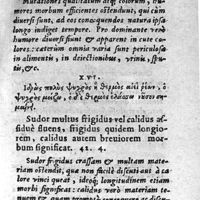 Mutationes qualitatum atq; colorum, hu-
mores morbum efficientes ostendunt, qui cum
diversi sunt, ad eos concoquendos natura ipsa
longo indiget tempore. Pro dominante verò
humore diversi sunt & apparent in cute ca-
lores: cæterum omnia varia sunt periculosa
in alimentis, in dejectionibus, vrinis,
&c.
XVI.
Ἱδρὼς πολὺς ψυχρὸς ἢ θερμὸς αἰεὶ ῥέων, ὁ
ψυχρὸς μείζω, ὁ θερμὸς ἐλάσσω νοῦσον ση-
μαίνει.
Sudor multus frigidus vel calidus as-
siduè fluens, frigidus quidem longio-
rem, calidus autem breviorem mor-
bum significat. 42. 4.
Sudor frigidus crassam & multam mate-
riam ostendit, quæ non facilè discuti aut à ca-
lore vinci queat, ideoq; longitudinem etiam
morbi significat: calidus verò materiam te-
nuem & quam